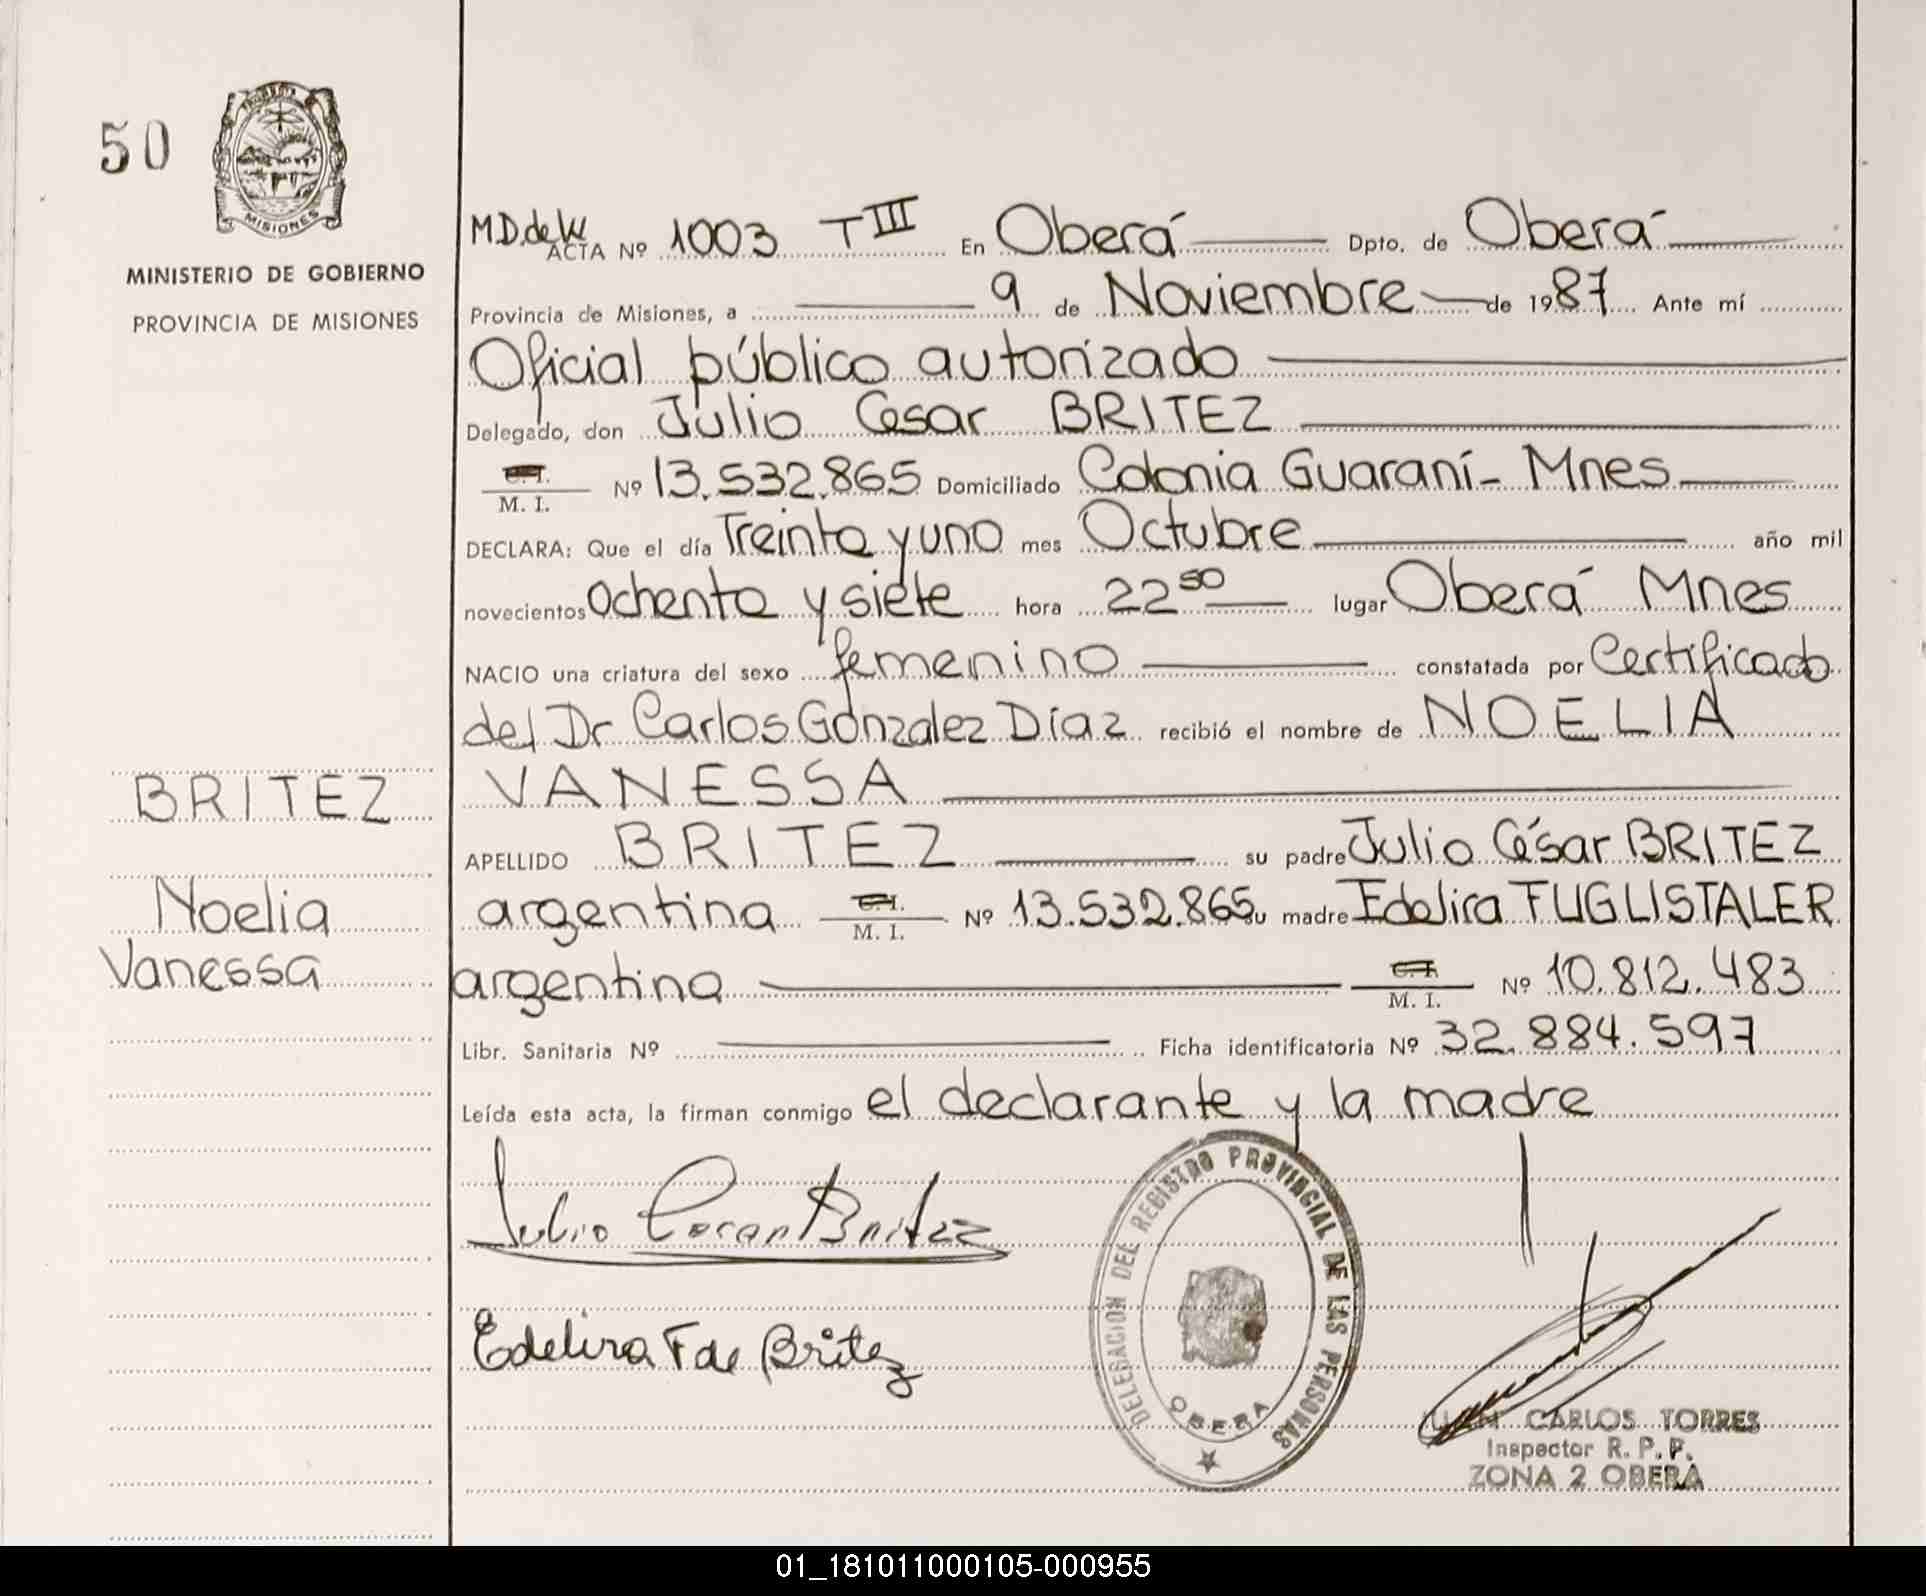 50
MISIONES
MINISTERIO DE GOBIERNO
PROVINCIA DE MISIONES
BRITEZ
Noelia
Vanessa
M.D.de W
ACTA Nº 1003 T III En Oberá Dpto. de Oberá
Provincia de Misiones, a 9 de Noviembre de 1987 Ante mí
Oficial público autorizado
Delegado, don Julio Cesar BRITEZ
C.I.
M. I. Nº 13.532.865 Domiciliado Colonia Guaraní - Mnes
DECLARA: Que el día Treinta y uno mes Octubre año mil
novecientos Ochenta y siete hora 22 50 lugar Oberá Mnes
NACIO una criatura del sexo femenino constatada por Certificado
del Dr Carlos Gonzalez Díaz recibió el nombre de NOELIA
VANESSA
APELLIDO BRITEZ su padre Julio César BRITEZ
argentina C.I. M. I. Nº 13.532.865 su madre Edelira FUGLISTALER
argentina C.I. M. I. Nº 10.812.483
Libr. Sanitaria Nº Ficha identificatoria Nº 32.884.597
Leída esta acta, la firman conmigo el declarante y la madre
Julio Cesar Britez
Edelira F de Britez
DELEGACION DEL REGISTRO PROVINCIAL DE LAS PERSONAS
OBERA
JUAN CARLOS TORRES
Inspector R. P. P.
ZONA 2 OBERÁ
01_181011000105-000955